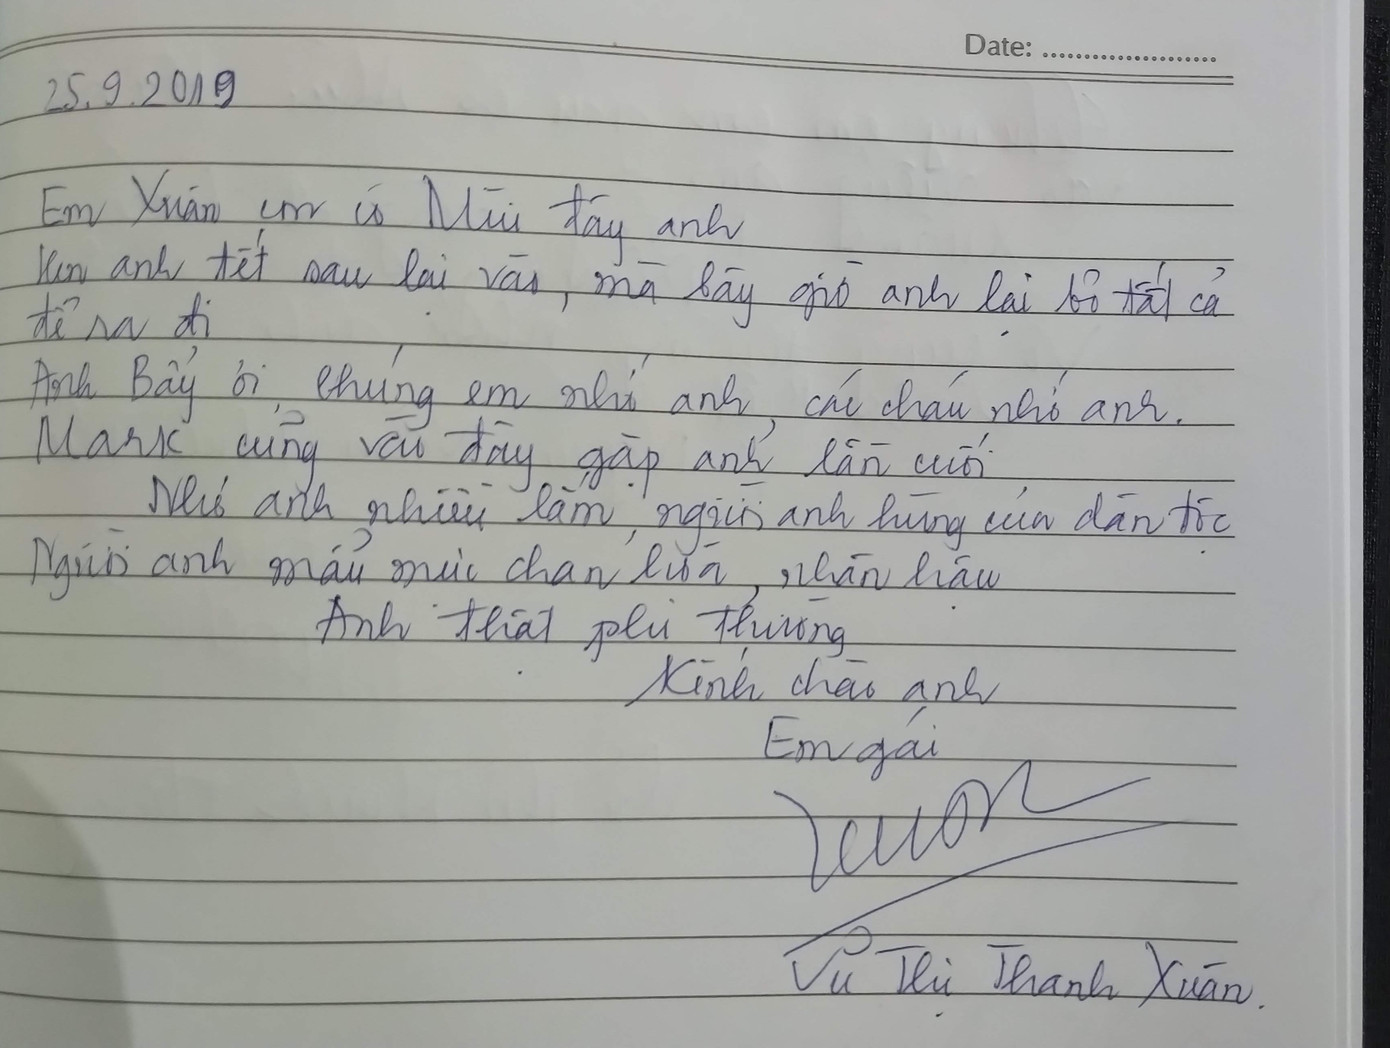 Date: .....................
25.9.2019
Em Xuân em cô Mùi đây anh
Hẹn anh tết sau lại vào, mà bây giờ anh lại bỏ tất cả
để ra đi
Anh Bẩy ơi, chúng em nhớ anh, các cháu nhớ anh.
Mark cũng vào đây gặp anh lần cuối
Nhớ anh nhiều lắm, người anh hùng của dân tộc
Người anh mẫu mực chan hòa, nhân hậu
Anh thật phi thường
Kính chào anh
Em gái
Vũ Thị Thanh Xuân.